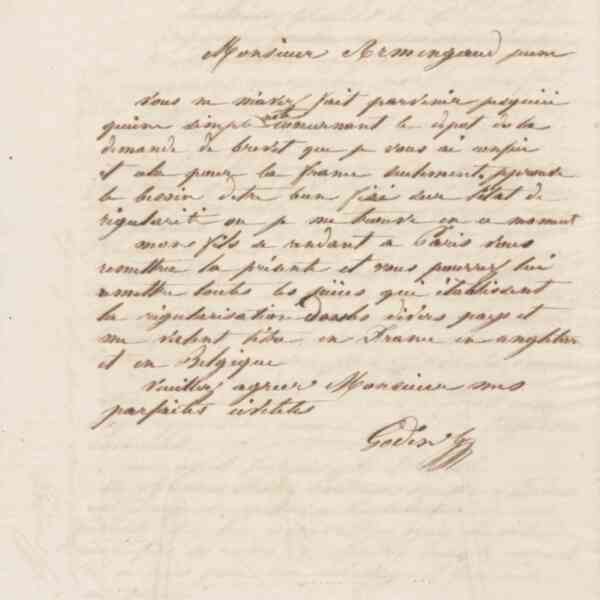 Monsieur Armengaud jeune
vous ne m'avez fait parvenir jusquici
qu'une simple note concernant le depot de la
demande de brevet que je vous ai confié
et cela pour la france seulement, jeprouve
le besoin d'etre bien fixé sur l'état de
régularité ou je me trouve en ce moment
mon fils se rendant a Paris vous
remettra la présente et vous pourrez lui
remettre toutes les pièces qui établissent
la régularisation dans les divers pays et
me valent titre en France en angleterre
et en Belgique
Veuillez agréer Monsieur mes
parfaites civilités
Godin